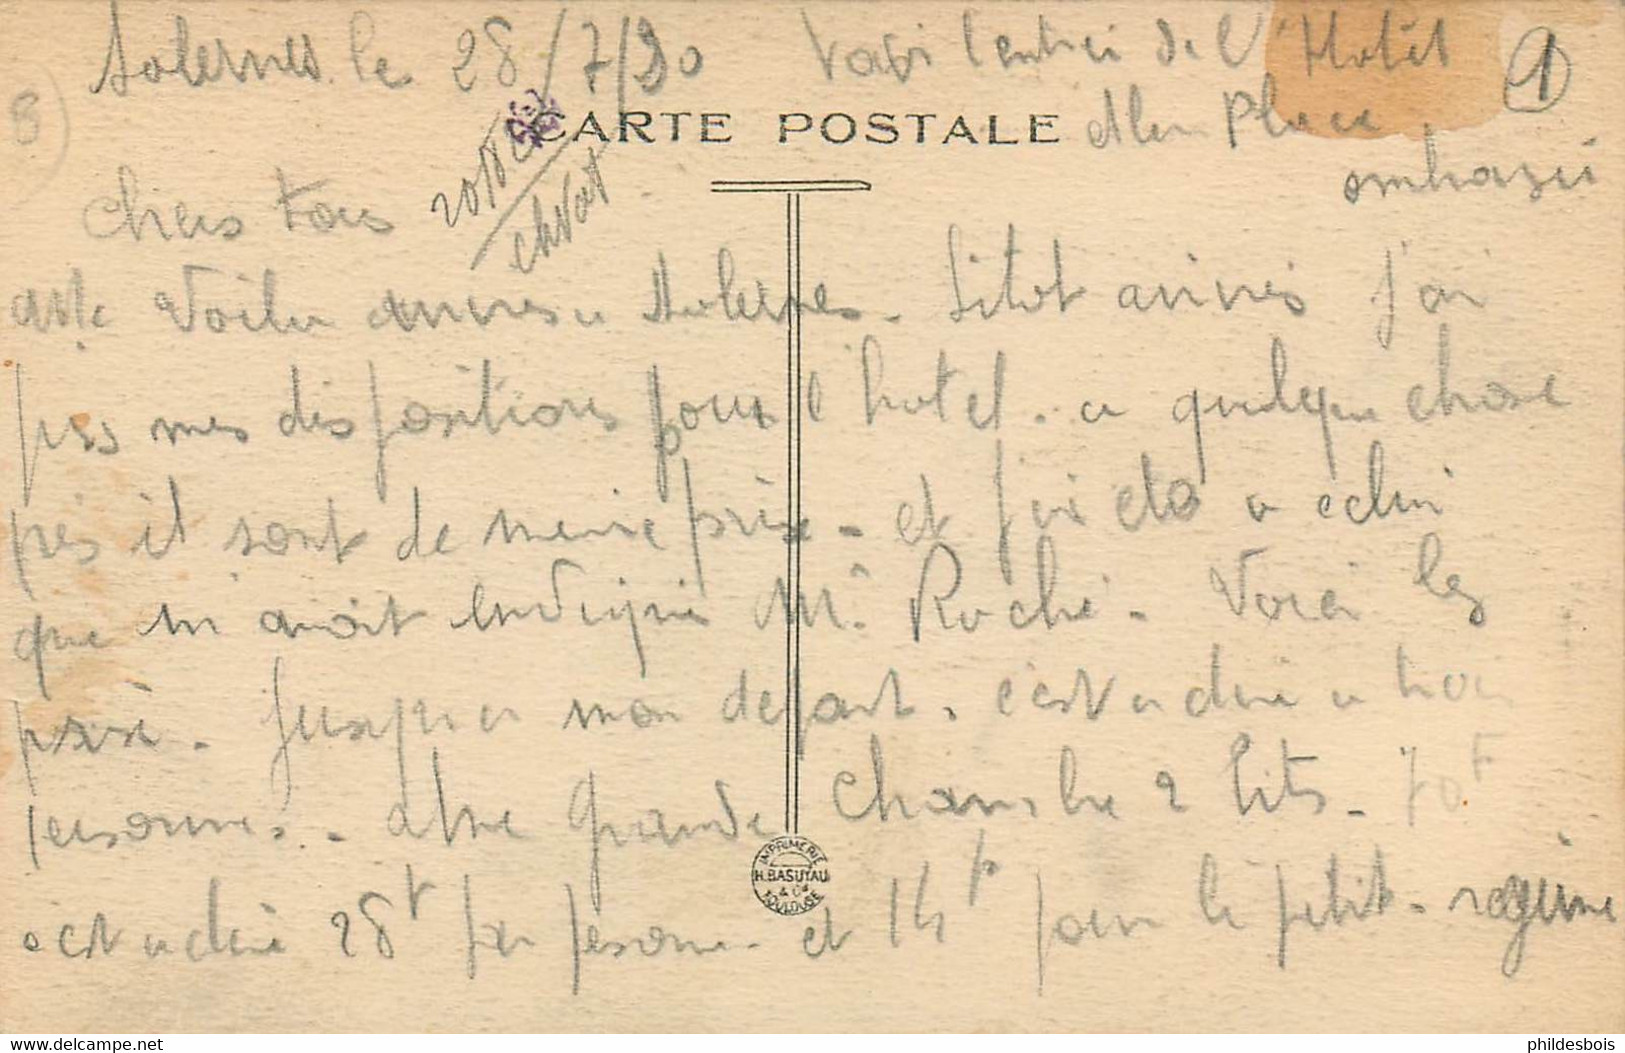 Salernes le 28/7/30 Voici l'entrée de l'Hotel
1
3
CARTE POSTALE
et la Place
ombragée
Chers tous
Voila arrives a Salernes. Sitot arrivés j'ai
pris mes dispositions pour l'hotel. a quelque chose
près il sont de meme prix. et j'ai été a celui
que m'avait indiqué Mr Roche. Voici les
prix. Jusqu'a mon depart. c'est a dire a trois
personnes. une grande chambre 2 lits. 70F
c'est a dire 28F par personne. et 14F pour le petit. regime
IMPRIMERIE
H. BASUYAU
& Cie
TOULOUSE
delcampe.net
phildesbois